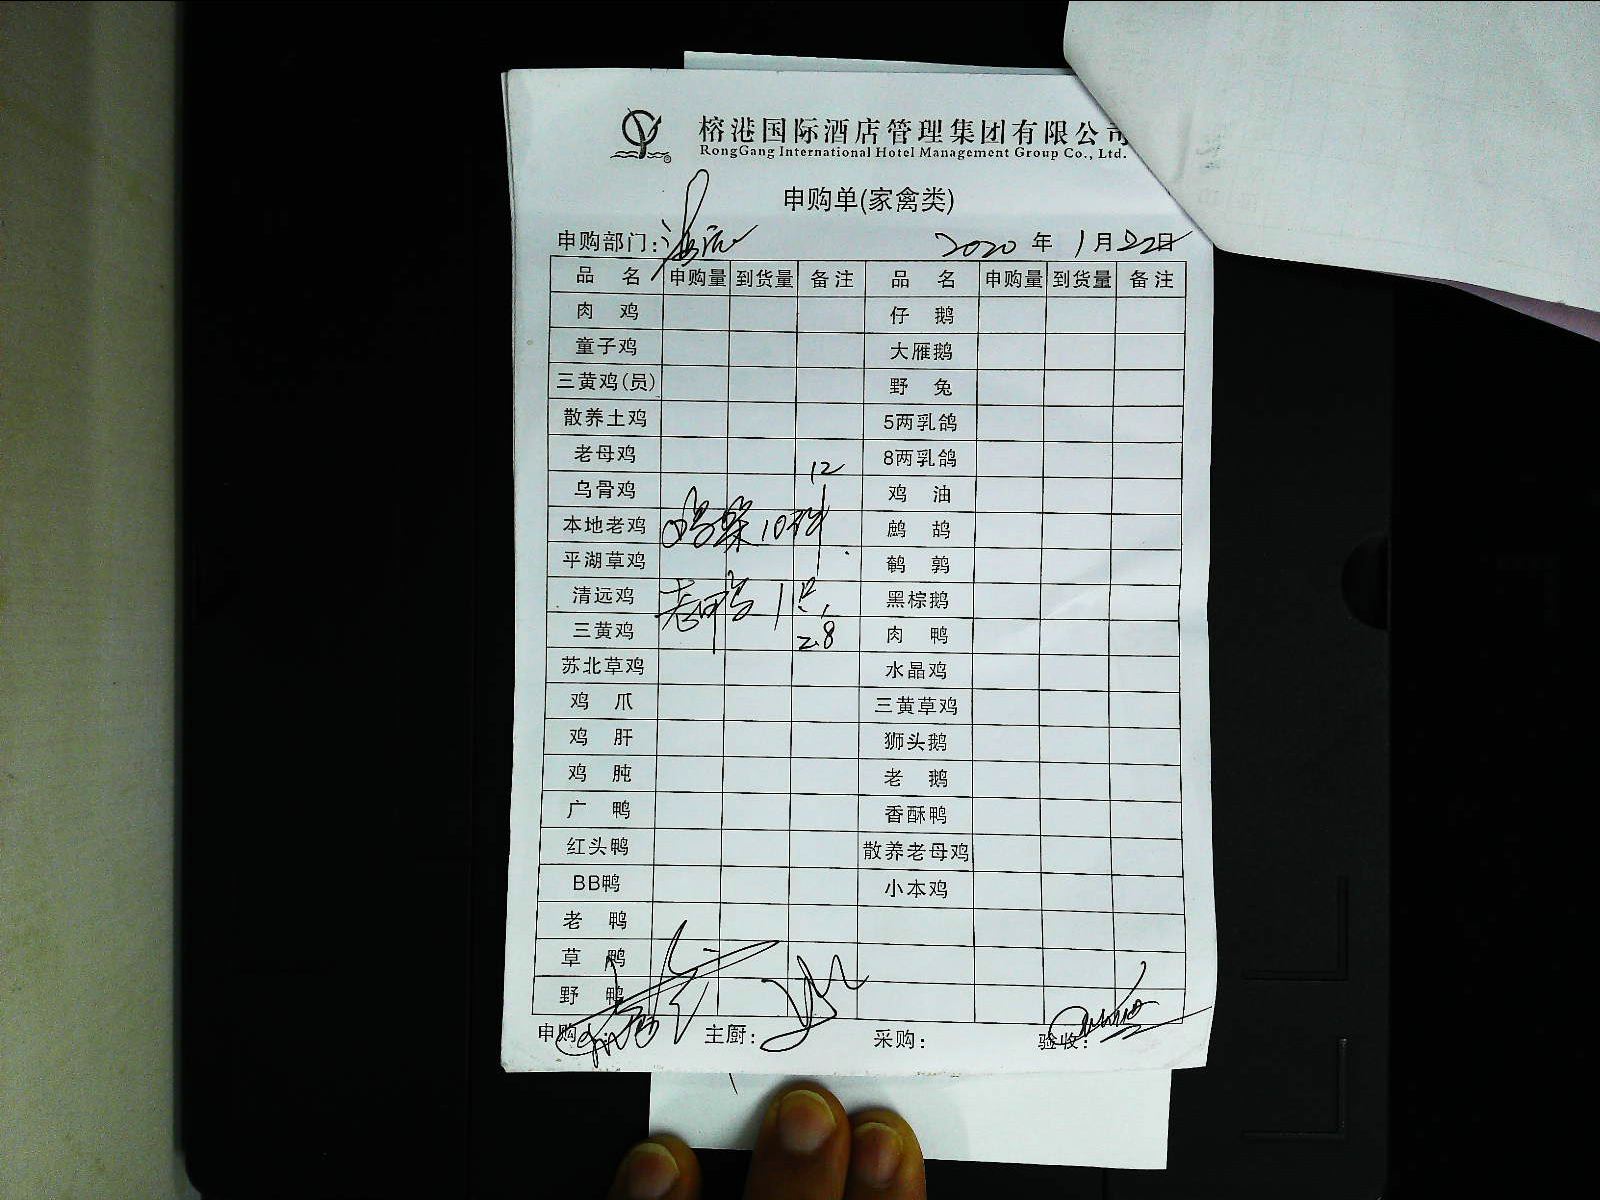 榕港国际酒店管理集团有限公司
RongGang International Hotel Management Group Co., Ltd.
申购单(家禽类)
申购部门: 2020 年 1 月 22 日
品 名 申购量 到货量 备注 品 名 申购量 到货量 备注
肉 鸡 仔 鹅
童子鸡 大雁鹅
三黄鸡(员) 野 兔
散养土鸡 5两乳鸽
老母鸡 12 8两乳鸽
乌骨鸡 鸡 油
本地老鸡 鸡 10 鹧 鸪
平湖草鸡 鹌 鹑
清远鸡 老母鸡 1只 黑棕鹅
三黄鸡 2.8 肉 鸭
苏北草鸡 水晶鸡
鸡 爪 三黄草鸡
鸡 肝 狮头鹅
鸡 肫 老 鹅
广 鸭 香酥鸭
红头鸭 散养老母鸡
BB鸭 小本鸡
老 鸭
草 鸭
野 鸭
申购 主厨: 采购: 验收: